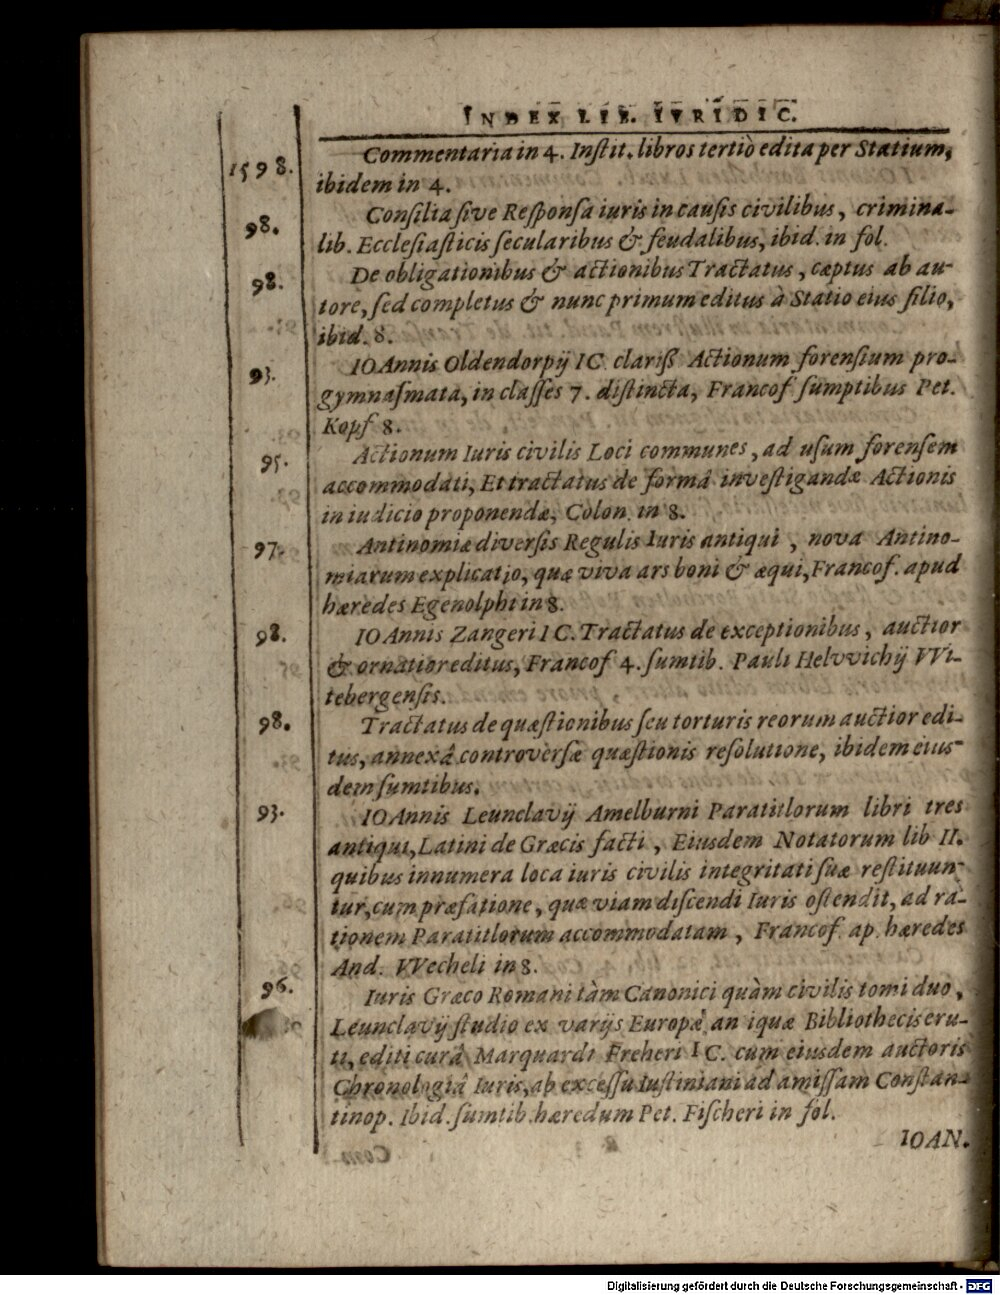 INDEX LIB. IVRIDIC.
1598. Commentaria in 4. Instit. libros tertiò edita per Statium,
ibidem in 4.
98. Consilia sive Responsa iuris in causis civilibus, crimina-
lib. Ecclesiasticis secularibus & feudalibus, ibid. in fol.
98. De obligationibus & actionibus Tractatus, cæptus ab au-
tore, sed completus & nunc primum editus à Statio eius filio,
ibid. 8.
93. IOAnnis Oldendorpij IC clariß Actionum forensium pro-
gymnasmata, in classes 7. distincta, Francof sumptibus Pet.
Kopf 8.
95. Actionum Iuris civilis Loci communes, ad usum forensem
accommodati, Et tractatus de formâ investigandæ Actionis
in iudicio proponendæ, Colon. in 8.
97. Antinomiæ diversis Regulis Iuris antiqui, nova Antino-
miarum explicatio, quæ viva ars boni & æqui, Francof. apud
hæredes Egenolphi in 8.
98. IOAnnis Zangeri IC. Tractatus de exceptionibus, auctior
& ornatior editus, Francof 4. sumtib. Pauli Helvvichij VVi-
tebergensis.
98. Tractatus de quæstionibus seu torturis reorum auctior edi-
tus, annexâ controversæ quæstionis resolutione, ibidem eius-
dem sumtibus.
93. IOAnnis Leunclavij Amelburni Paratitlorum libri tres
antiqui, Latini de Græcis facti, Eiusdem Notatorum lib II.
quibus innumera loca iuris civilis integritati suæ restituun-
tur, cum præfatione, quæ viam discendi Iuris ostendit, ad ra-
tionem Paratitlorum accommodatam, Francof. ap. hæredes
And. VVecheli in 8.
96. Iuris Græco Romani tàm Canonici quàm civilis tomi duo,
Leunclavij studio ex varijs Europæ an iquæ Bibliothecis eru-
ti, editi curâ Marquardi Freheri IC. cum eiusdem auctoris
Chronologiâ Iuris, ab excessu Iustiniani ad amissam Constan-
tinop. Ibid. sumtib. hæredum Pet. Fischeri in fol.
IOAN.
Digitalisierung gefördert durch die Deutsche Forschungsgemeinschaft - DFG